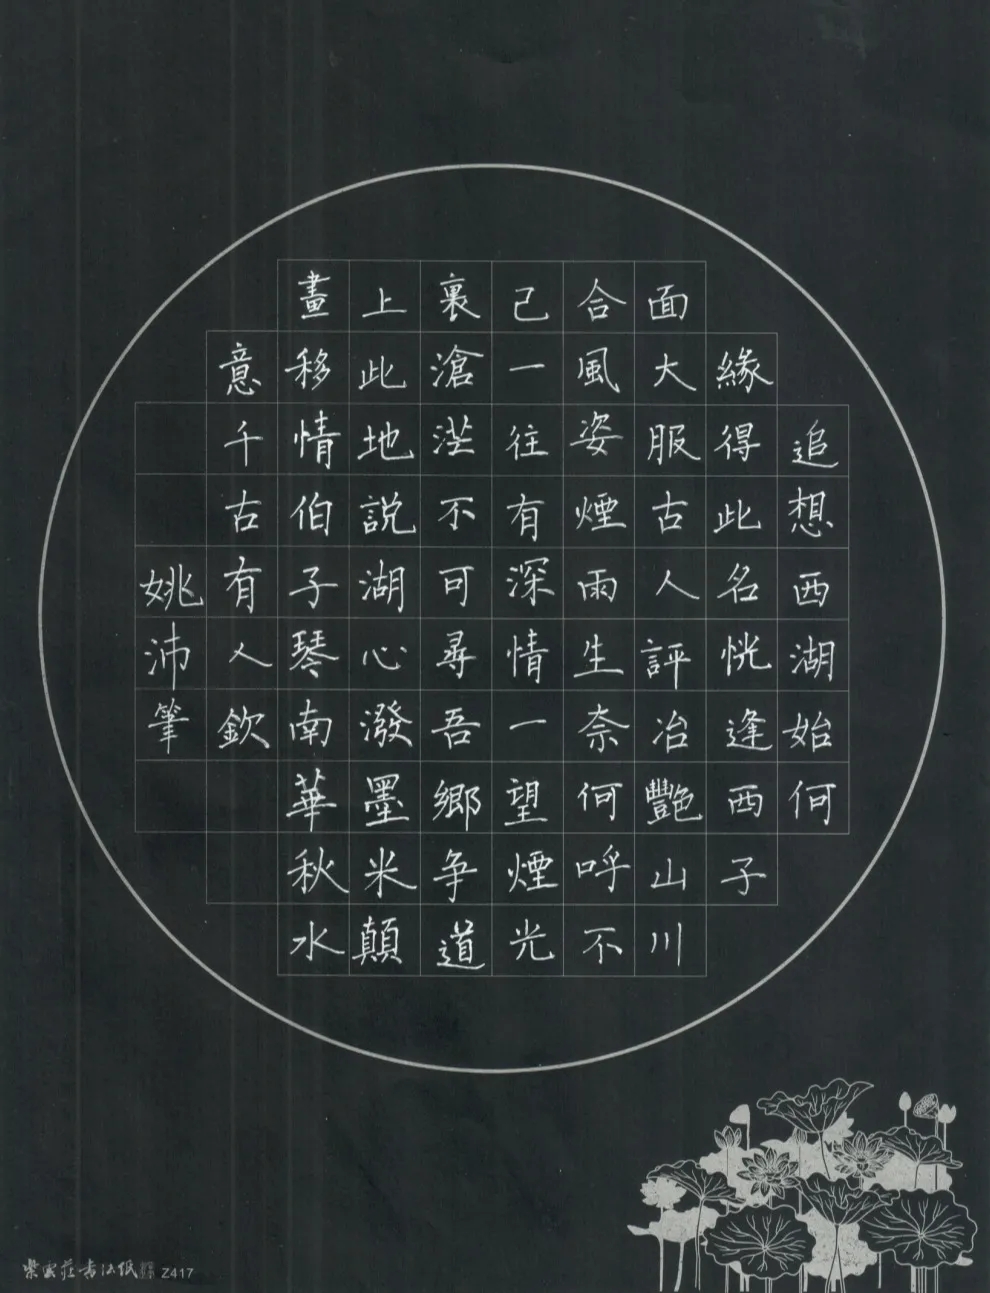 追想西湖始何
緣得此名恍逢西子
面大服古人評冶艷山川
合風姿煙雨生奈何呼不
己一往有深情一望煙光
裏滄茫不可尋吾鄉争道
上此地說湖心潑墨米顛
畫移情伯子琴南華秋水
意千古有人欽
姚沛筆
紫雲莊書法紙 Z417